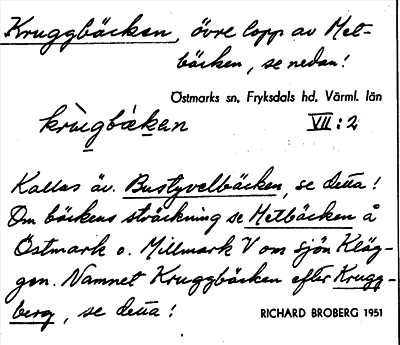 Kruggbäcken, övre lopp av Met-
bäcken, se nedan!
Östmarks sn, Fryksdals hd, Värml. län
krùgbäken VII:2
Kallas äv. Bustyvelbäcken, se detta!
Om bäckens sträckning se Metbäcken å
Östmark o. Millmark V om sjön Kläg-
gen. Namnet Kruggbäcken efter Krugg-
berg, se detta!
RICHARD BROBERG 1951